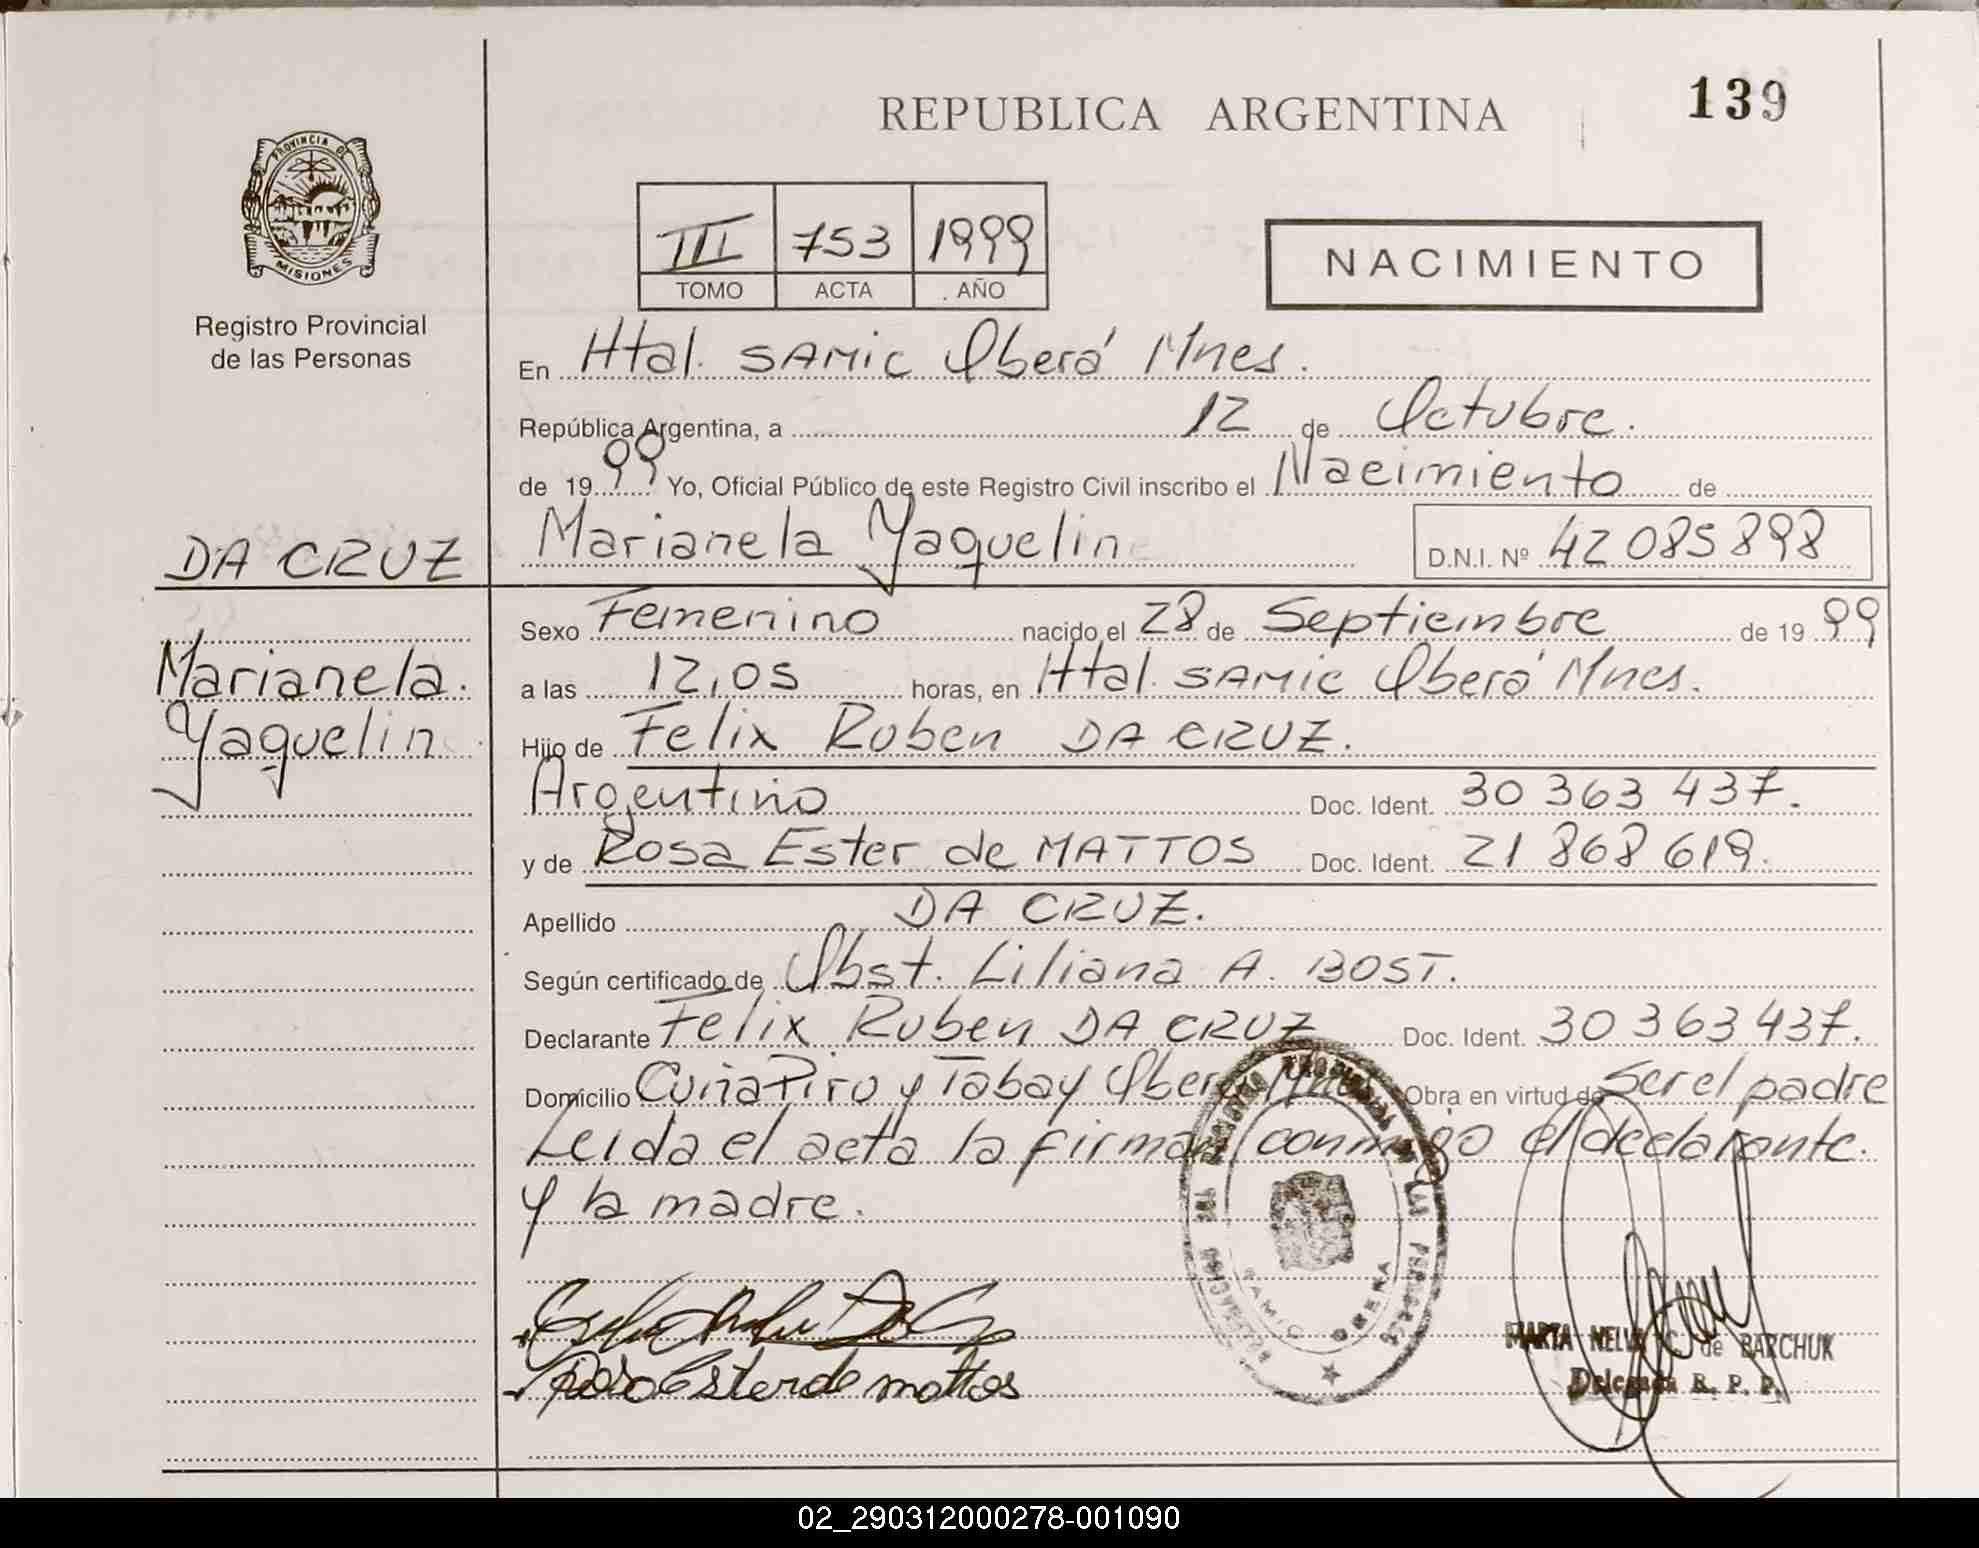 REPUBLICA ARGENTINA
139
PROVINCIA DE
MISIONES
Registro Provincial
de las Personas
III 753 1999
TOMO ACTA AÑO
NACIMIENTO
En Htal. SAMIC Oberá Mnes.
República Argentina, a 12 de Octubre.
de 1999 Yo, Oficial Público de este Registro Civil inscribo el Nacimiento de
Marianela Yaquelin
D.N.I. Nº 42 085 898
DA CRUZ
Marianela.
Yaquelin
Sexo Femenino nacido el 28 de Septiembre de 1999
a las 12,05 horas, en Htal. SAMIC Oberá Mnes.
Hijo de Felix Ruben DA CRUZ.
Argentino Doc. Ident. 30 363 437.
y de Rosa Ester de MATTOS Doc. Ident. 21 868 619.
Apellido DA CRUZ.
Según certificado de Obst. Liliana A. BOST.
Declarante Felix Ruben DA CRUZ Doc. Ident. 30 363 437.
Domicilio Cuña Piru y Tabay Oberá Mnes Obra en virtud de Ser el padre
Leida el acta la firman conmigo el declarante.
y la madre.
Rosa Ester de mattos
SAMIC OBERA
MARTA NELVA C. de BARCHUK
Delegada R. P. P.
02_290312000278-001090